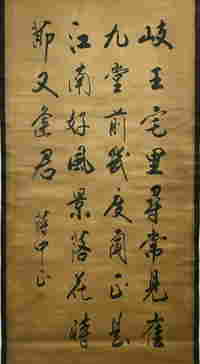 岐王宅里尋常見崔
九堂前幾度聞正是
江南好風景落花時
節又逢君
蔣中正